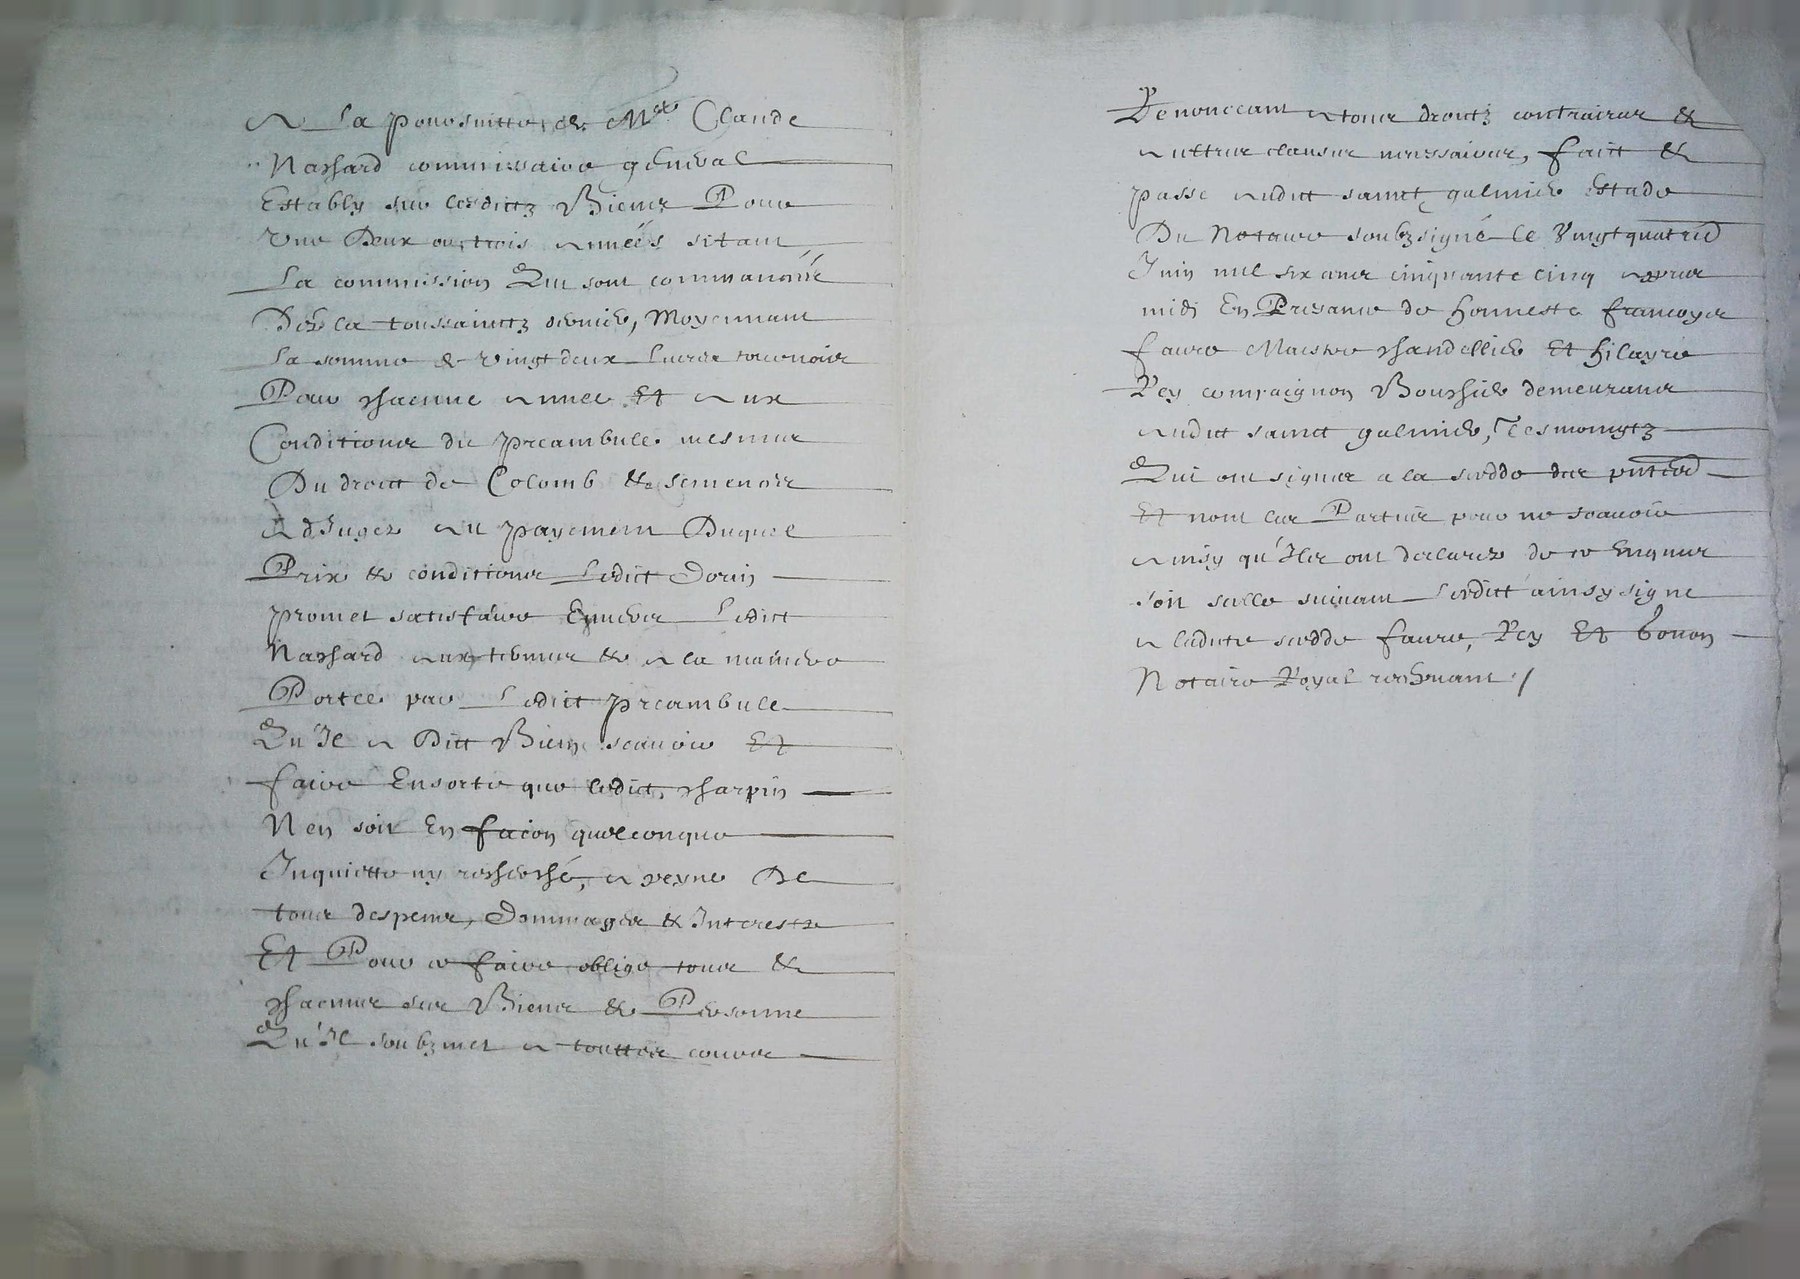 A La poursuitte de Me Claude
Nassard commissaire general
Estably sur lesdittz Biens Pour
Une Deux ou trois Années sitant
La commission Qui sont commancée
Dez la toussainctz dernier, Moyennant
La somme de vingt deux Livres tournois
Pour chacune Annee Et Aux
Conditions du preambule mesmes
Du droict de Colomb & semenoir
Adjugez Au payement Duquel
Prix & conditions Ledict Dorin
promet satisfaire Envers Ledict
Nassard Aux termes & A la maniere
Portee par Ledict preambule
Qu'Il A Dict Bien scavoir Et
faire Ensorte que ledict charpin
N en soit En facon quelconque
Inquietté ny recherché, A peyne De
tous despens, Dommages & Interestz
Et Pour ce faire oblige tous &
chacuns ses Biens & Personne
Qu'Il soubzmet A touttes cours
Renonceant A tous droictz contraires &
Auttres clauses necessaires, faict &
passé Audict sainct galmier Estude
Du Notaire soubzsigné le Vingtquatrie
Juin mil six cens cinquante cinq Apres
midi En Presance de honneste francoys
faure Maistre chandellier Et hilayre
Rey compaignon Bourssier demeurans
Audict sainct galmier, Tesmoingtz
Qui ont signes a la cedde des pnte
Et nont les Parties pour ne scavoir
Ainsy qu'Ilz ont declarez de ce Enquis
soit scellé suivant Ledict ainsy signé
A ladicte cedde faure, Rey Et Bouon
Notaire Royal recepvant /